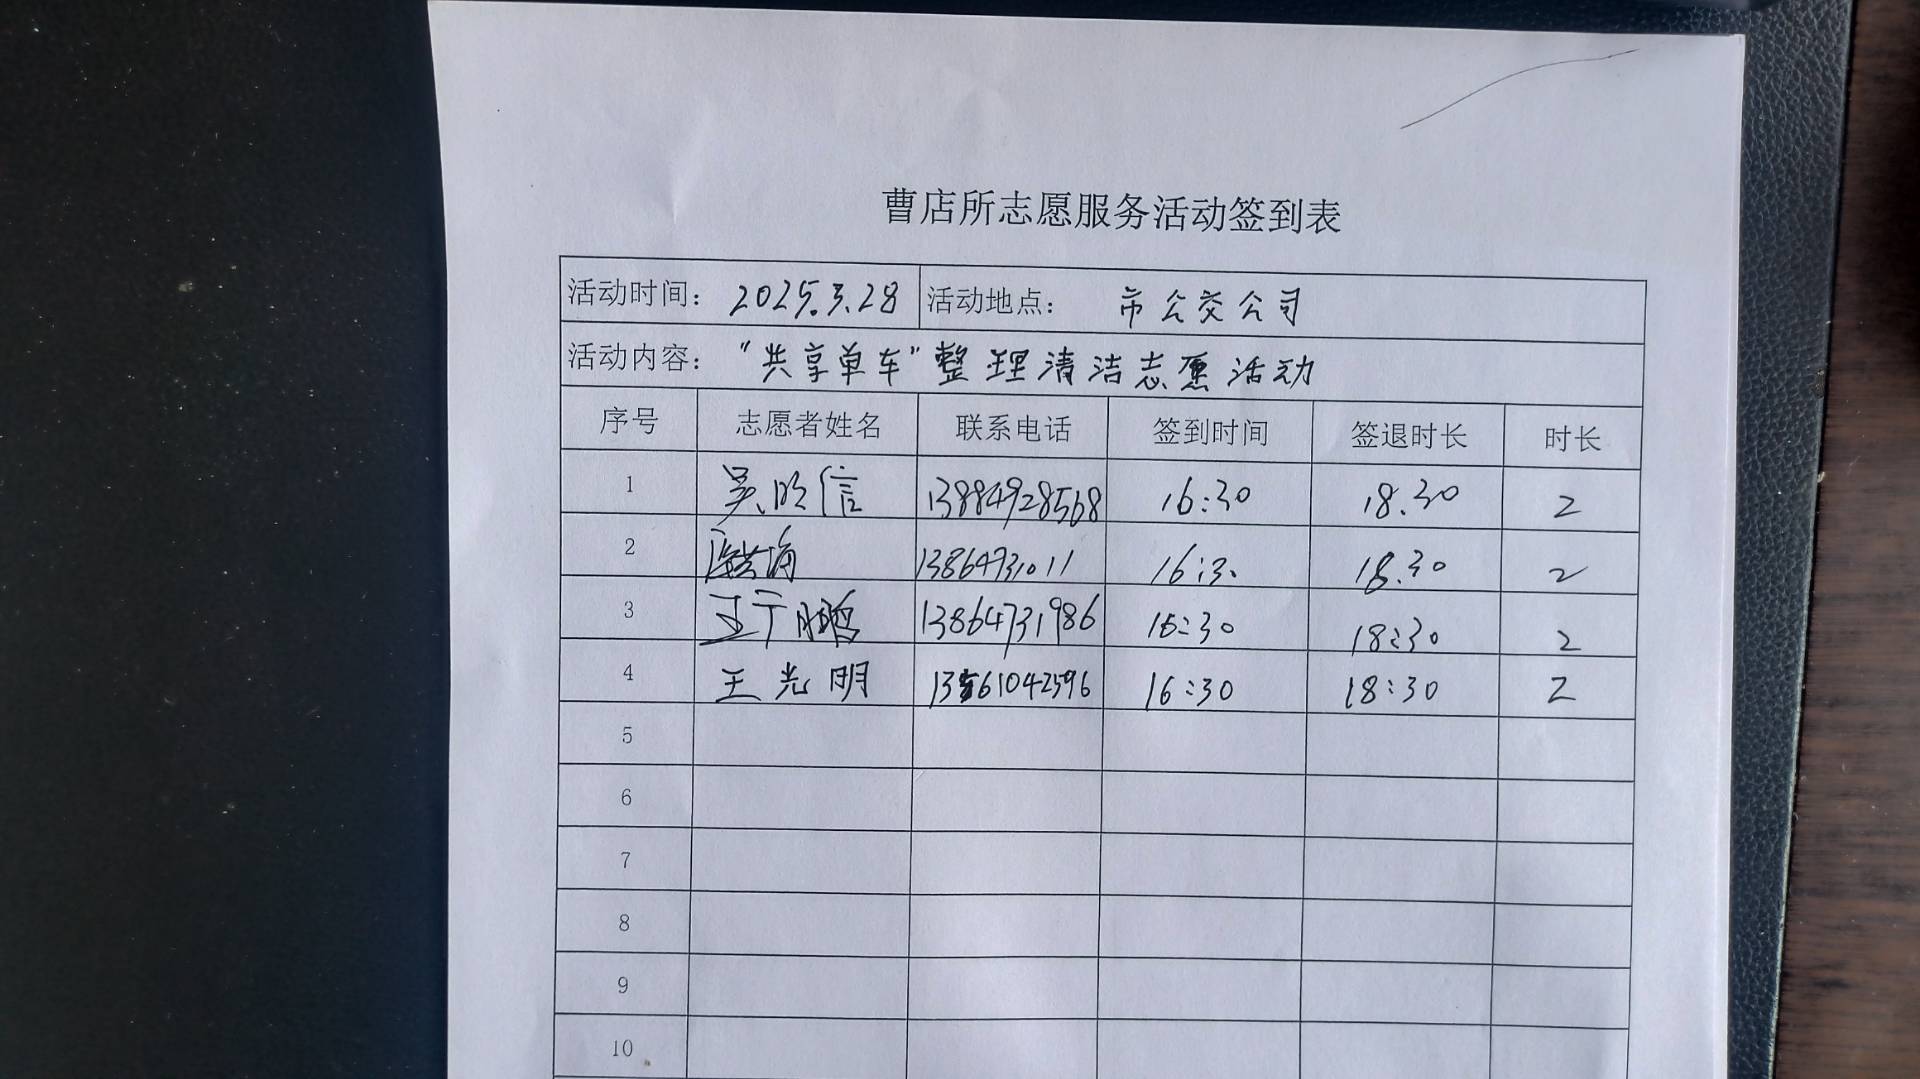 曹店所志愿服务活动签到表
活动时间： 2025.3.28 活动地点： 市公交公司
活动内容： “共享单车”整理清洁志愿活动
序号 志愿者姓名 联系电话 签到时间 签退时长 时长
1 吴 信 13884928568 16:30 18.30 2
2 13864731011 16:30 18.30 2
3 王 鹏 13864731986 16:30 18:30 2
4 王光明 13561042596 16:30 18:30 2
5
6
7
8
9
10